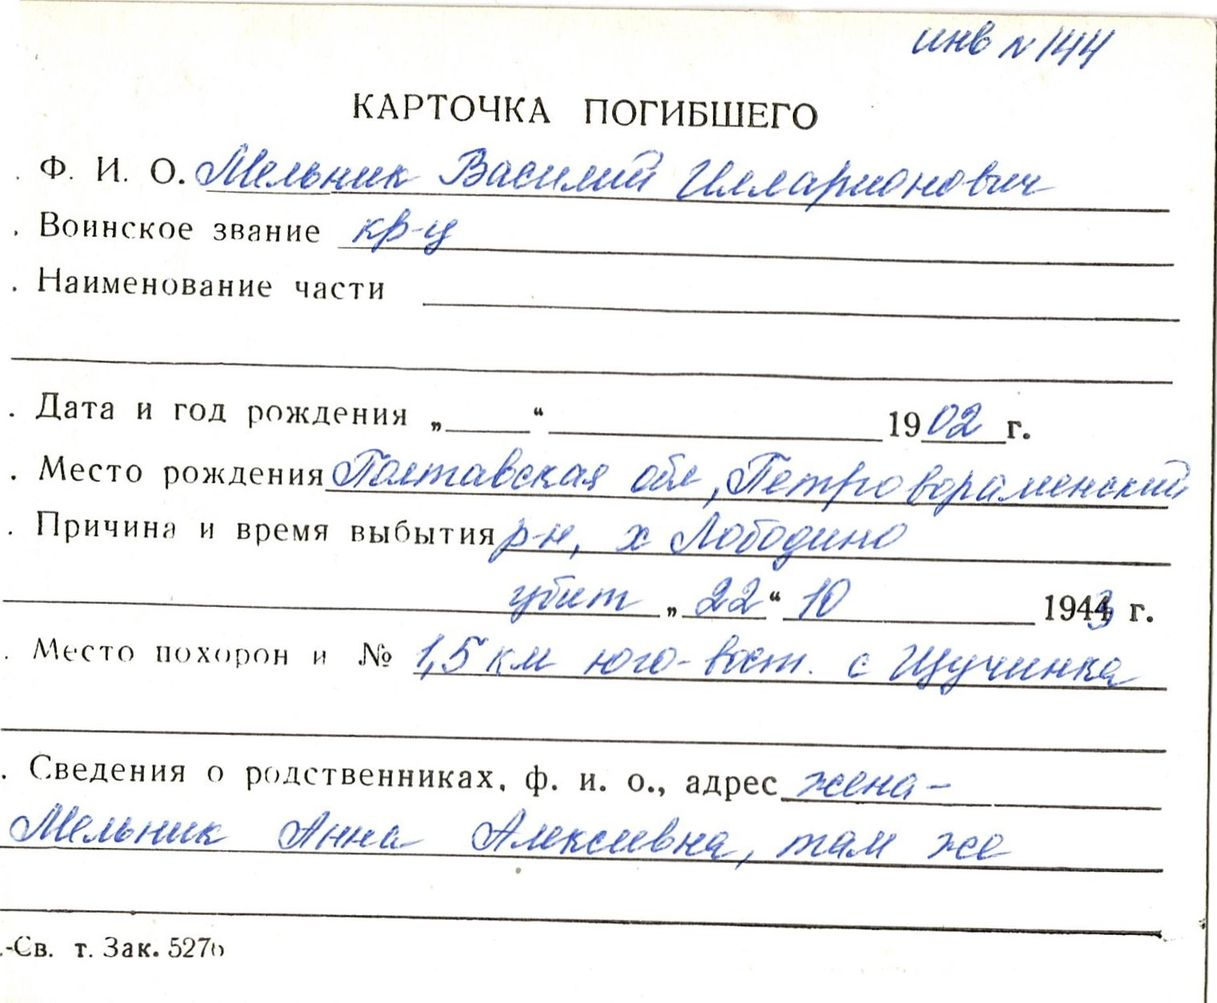 инв N 144
КАРТОЧКА ПОГИБШЕГО
. Ф. И. О. Мельник Василий Илларионович
. Воинское звание кр-ц
. Наименование части
. Дата и год рождения „ “ 1902 г.
. Место рождения Полтавская обл, Петровораменский
. Причина и время выбытия р-н, х Лободино
убит „ 22 “ 10 1943 г.
. Место похорон и № 1,5 км юго-вост. с Щучинка
. Сведения о родственниках, ф. и. о., адрес жена-
Мельник Анна Алексеевна, там же
.-Св. т. Зак. 5276